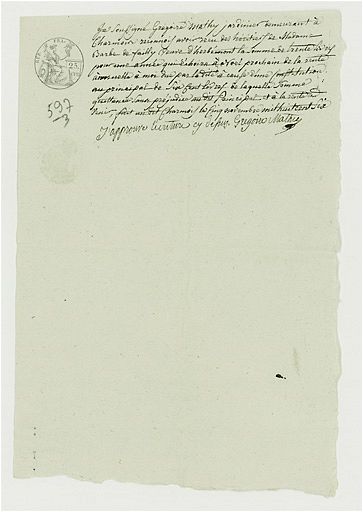 Je soussigné Grégoire Mathy jardinier demeurant à
Charmois reconnois avoir reçu des héritiers de Madame
Barbe de failly la somme de trente
pour une année qui échéera à Noel prochain de la rente
annuelle à moi due par la à cause d'une constitution
au principal de six cent de laquelle somme
quittance sans préjudice audit principal et à la rente à
fait audit Charmois le cinq novembre mil huit cent six
J'approuve l'ecriture cy dessus Gregoire Mathy
25
597
3